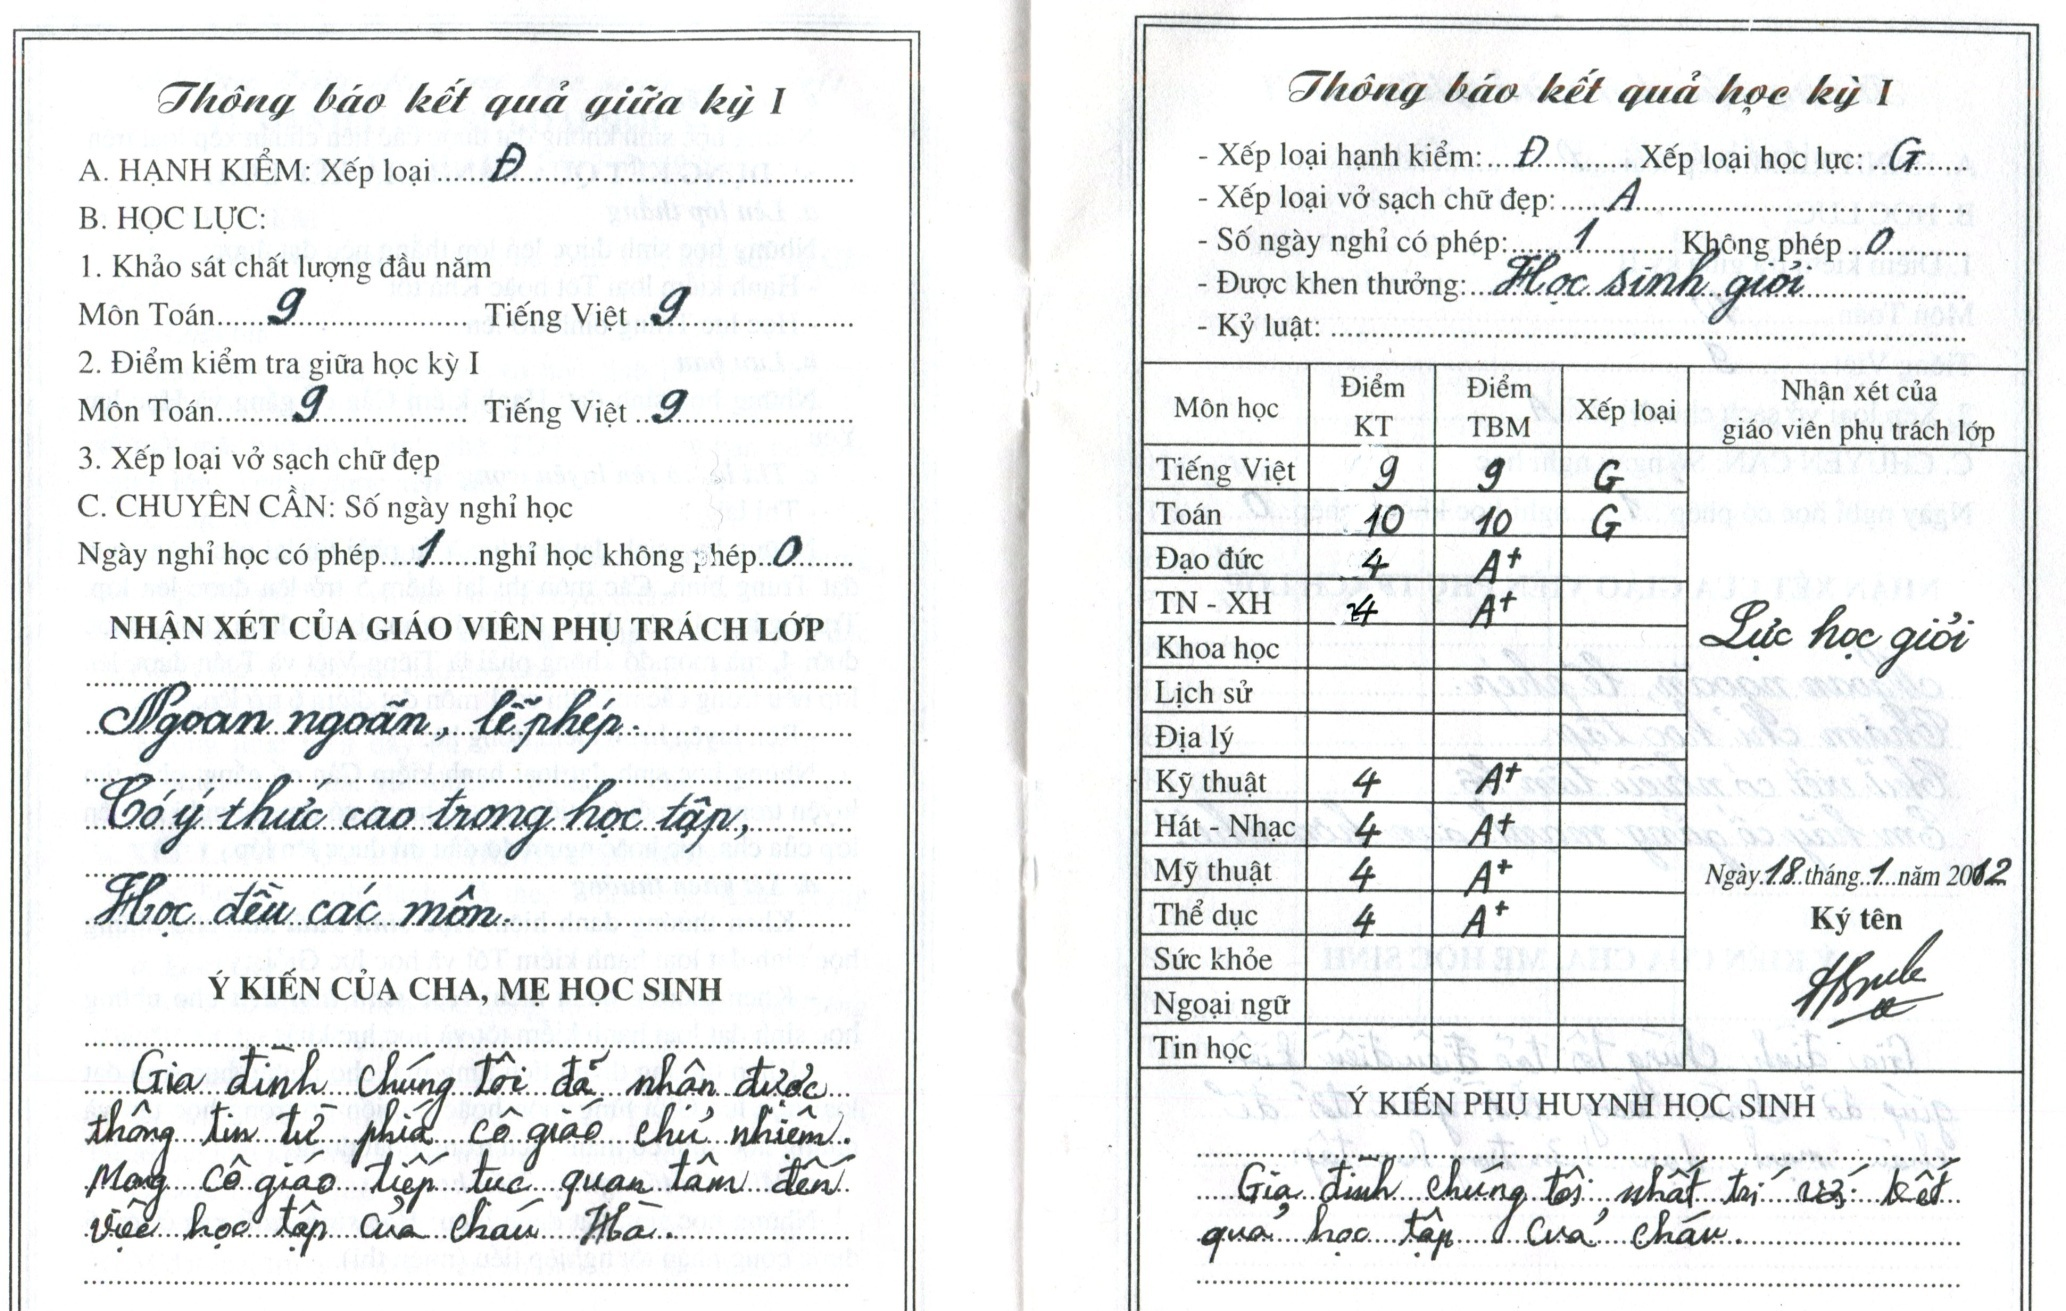 Thông báo kết quả giữa kỳ I
A. HẠNH KIỂM: Xếp loại Đ
B. HỌC LỰC:
1. Khảo sát chất lượng đầu năm
Môn Toán 9 Tiếng Việt 9
2. Điểm kiểm tra giữa học kỳ I
Môn Toán 9 Tiếng Việt 9
3. Xếp loại vở sạch chữ đẹp
C. CHUYÊN CẦN: Số ngày nghỉ học
Ngày nghỉ học có phép 1 nghỉ học không phép 0
NHẬN XÉT CỦA GIÁO VIÊN PHỤ TRÁCH LỚP
Ngoan ngoãn, lễ phép.
Có ý thức cao trong học tập,
Học đều các môn.
Ý KIẾN CỦA CHA, MẸ HỌC SINH
Gia đình chúng tôi đã nhận được
thông tin từ phía cô giáo chủ nhiệm.
Mong cô giáo tiếp tục quan tâm đến
việc học tập của cháu Hà.
Thông báo kết quả học kỳ I
- Xếp loại hạnh kiểm: Đ Xếp loại học lực: G
- Xếp loại vở sạch chữ đẹp: A
- Số ngày nghỉ có phép: 1 Không phép 0
- Được khen thưởng: Học sinh giỏi
- Kỷ luật:
Môn học Điểm KT Điểm TBM Xếp loại Nhận xét của giáo viên phụ trách lớp
Tiếng Việt 9 9 G
Toán 10 10 G
Đạo đức 4 A+
TN - XH 4 A+
Lực học giỏi
Khoa học
Lịch sử
Địa lý
Kỹ thuật 4 A+
Hát - Nhạc 4 A+
Mỹ thuật 4 A+
Ngày 18 tháng 1 năm 2012
Thể dục 4 A+
Ký tên
Sức khỏe
Ngoại ngữ
Tin học
Ý KIẾN PHỤ HUYNH HỌC SINH
Gia đình chúng tôi nhất trí với kết
quả học tập của cháu.